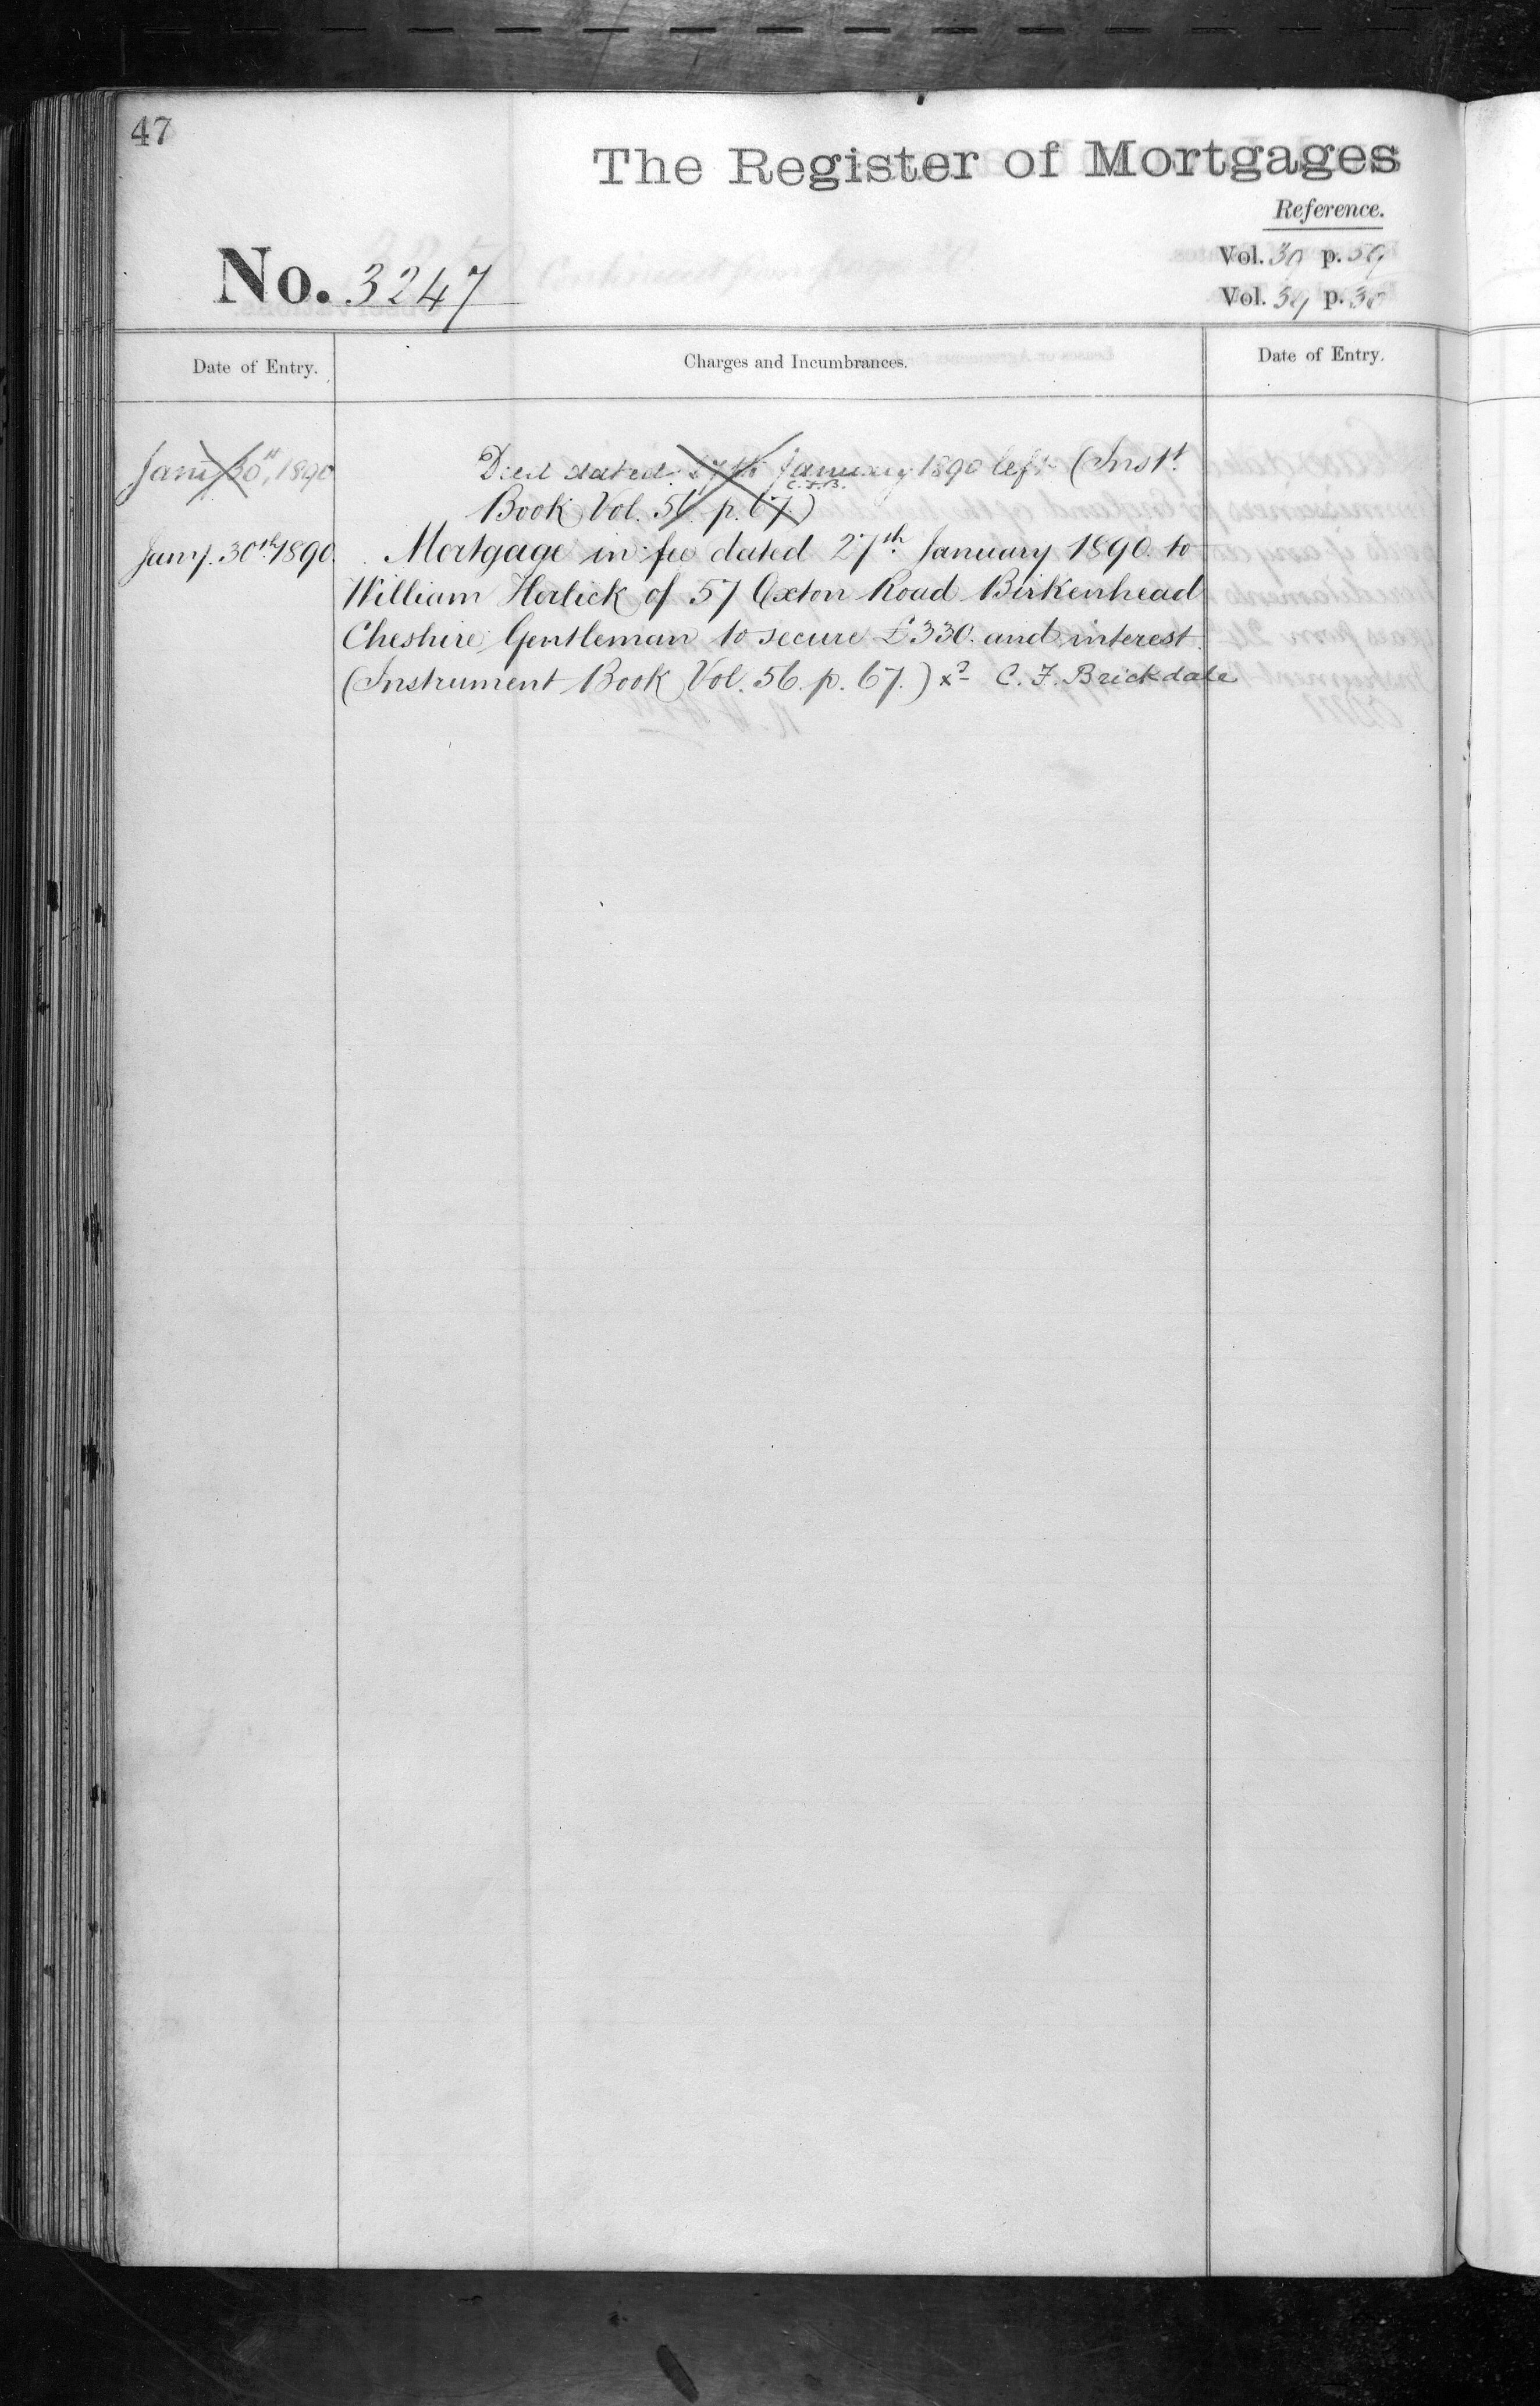 47
The Register of Mortgages
Reference.
No. 3247
Vol. 30 p. 59
Vol. 59 p. 30
Date of Entry.
Charges and Incumbrances.
Date of Entry.
Jany 30th, 1890
Deed dated 27th January 1890 left (Inst
C.F.B.
Book Vol. 56 p. 67)
Jany. 30th 1890.
Mortgage in fee dated 27th January 1890. to
William Horlick of 57 Oxton Road Birkenhead
Cheshire Gentleman to secure £330. and interest.
(Instrument Book Vol. 56. p. 67.) C. F. Brickdale